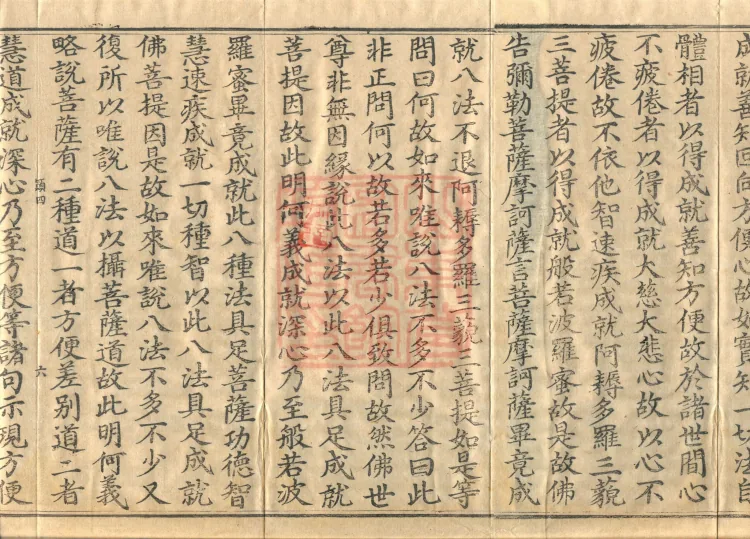 成就善知回向方便心故如實知一切法自
體相者以得成就善知方便故於諸世間心
不疲倦者以得成就大慈大悲心故以心不
疲倦故不依他智速疾成就阿耨多羅三藐
三菩提者以得成就般若波羅蜜故是故佛
告彌勒菩薩摩訶薩言菩薩摩訶薩畢竟成
就八法不退阿耨多羅三藐三菩提如是等
問曰何故如來唯說八法不多不少答曰此
非正問何以故若多若少俱致問故然佛世
尊非無因緣說此八法以此八法具足成就
菩提因故此明何義成就深心乃至般若波
羅蜜畢竟成就此八種法具足菩薩功德智
慧速疾成就一切種智以此八法具足成就
佛菩提因是故如來唯說八法不多不少又
復所以唯說八法以攝菩薩道故此明何義
略說菩薩有二種道一者方便差別道二者
慧道成就深心乃至方便等諸句示現方便
四
六